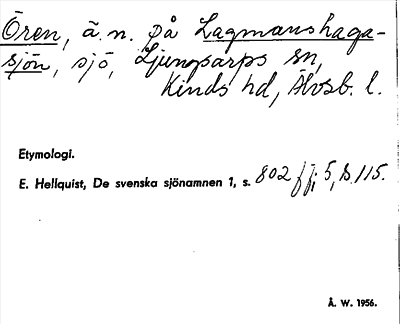 Ören, ä.n. på Lagmanshaga-
sjön, sjö, Ljungsarps sn,
Kinds hd, Älvsb. l.
Etymologi.
E. Hellquist, De svenska sjönamnen 1, s. 802 ff; 5, s. 115.
Å. W. 1956.